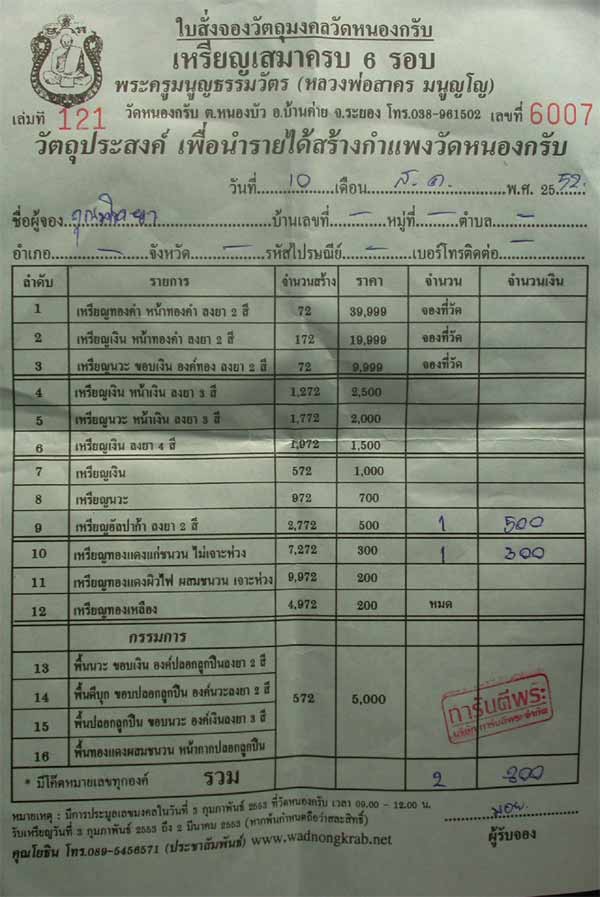 ใบสั่งจองวัตถุมงคลวัดหนองกรับ
เหรียญเสมาครบ 6 รอบ
พระครูมนูญธรรมวัตร (หลวงพ่อสาคร มนุญโญ)
เล่มที่ 121 วัดหนองกรับ ต.หนองบัว อ.บ้านค่าย จ.ระยอง โทร.038-961502 เลขที่ 6007
วัตถุประสงค์ เพื่อนำรายได้สร้างกำแพงวัดหนองกรับ
วันที่ 10 เดือน ส.ค. พ.ศ. 2552
ชื่อผู้จอง บ้านเลขที่ - หมู่ที่ - ตำบล -
อำเภอ - จังหวัด - รหัสไปรษณีย์ - เบอร์โทรติดต่อ -
ลำดับ รายการ จำนวนสร้าง ราคา จำนวน จำนวนเงิน
1 เหรียญทองคำ หน้าทองคำ ลงยา 2 สี 72 39,999 จองที่วัด
2 เหรียญเงิน หน้าทองคำ ลงยา 2 สี 172 19,999 จองที่วัด
3 เหรียญนวะ ขอบเงิน องค์ทอง ลงยา 2 สี 72 9,999 จองที่วัด
4 เหรียญเงิน หน้าเงิน ลงยา 3 สี 1,272 2,500
5 เหรียญนวะ หน้าเงิน ลงยา 3 สี 1,772 2,000
6 เหรียญเงิน ลงยา 4 สี 1,972 1,500
7 เหรียญเงิน 572 1,000
8 เหรียญนวะ 972 700
9 เหรียญอัลปาก้า ลงยา 2 สี 2,772 500 1 500
10 เหรียญทองแดงแก่ชนวน ไม่เจาะห่วง 7,272 300 1 300
11 เหรียญทองแดงผิวไฟ ผสมชนวน เจาะห่วง 9,972 200
12 เหรียญทองเหลือง 4,972 200 หมด
กรรมการ
13 พื้นนวะ ขอบเงิน องค์ปลอกลูกปืนลงยา 2 สี
14 พื้นดีบุก ขอบปลอกลูกปืน องค์นวะลงยา 2 สี
572 5,000
15 พื้นปลอกลูกปืน ขอบนวะ องค์เงินลงยา 3 สี
16 พื้นทองแดงผสมชนวน หน้ากากปลอกลูกปืน
การันตีพระ
* มีโค๊ดหมายเลขทุกองค์ รวม 2 800
หมายเหตุ : มีการประมูลเลขมงคลในวันที่ 3 กุมภาพันธ์ 2553 ที่วัดหนองกรับ เวลา 09.00 - 12.00 น.
รับเหรียญวันที่ 3 กุมภาพันธ์ 2553 ถึง 2 มีนาคม 2553 (หากพ้นกำหนดถือว่าสละสิทธิ์)
คุณโยธิน โทร.089-5456571 (ประชาสัมพันธ์) www.wadnongkrab.net
ผู้รับจอง